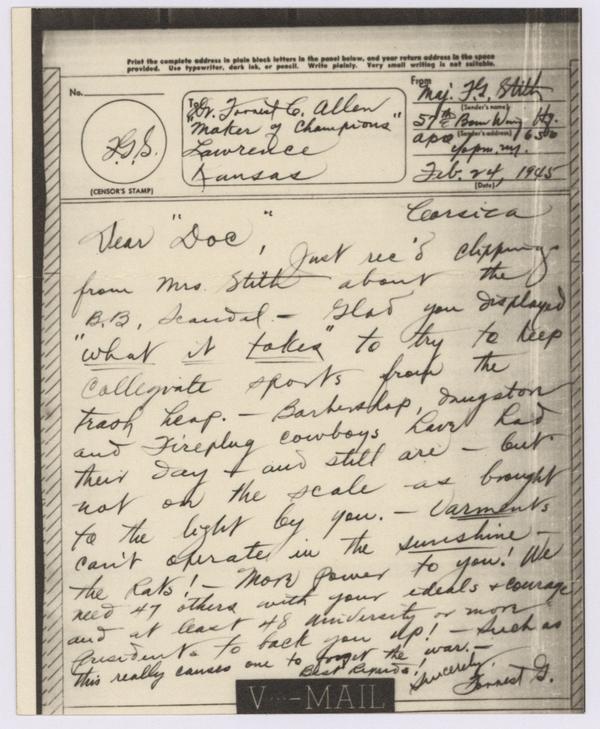 Print the complete address in plain block letters in the panel below, and your return address in the space
provided. Use typewriter, dark ink, or pencil. Write plainly. Very small writing is not suitable.
No.
F.G.S.
(CENSOR'S STAMP)
To
Dr. Forrest C. Allen
"Maker of Champions"
Lawrence
Kansas
From
Maj. F.G. Stith
(Sender's name)
57th Bom Wing Hq.
(Sender's address)
APO 650
Feb. 24, 1945
(Date)
Corsica
Dear "Doc",
Just rec'd clippings
from Mrs. Stith about the
B.B. Scandel. – Glad you displayed
"what it takes" to try to keep
Collegiate sports from the
trash heap. – Barbershop, drugstore
and Fireplug cowboys have had
their day – and still are – but
not on the scale as brought
to the light by you. – Varments
can't operate in the sunshine –
the Rats! – More power to you! We
need 47 others with your ideals & courage
and at least 48 University or more
Presidents to back you up! – Such as
this really causes one to forget the war. –
Best Regards!
Sincerely,
Forrest G.
V···–MAIL